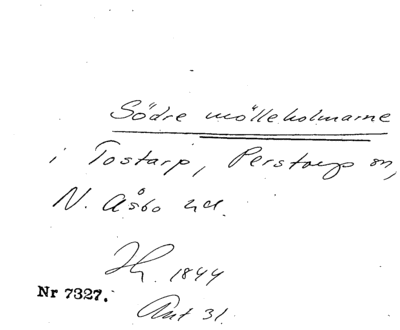 Södre mölleholmarne
i Tostarp, Perstorps sn,
N. Åsbo hd.
Jh. 1844
Nr 7327.
Ant 31.